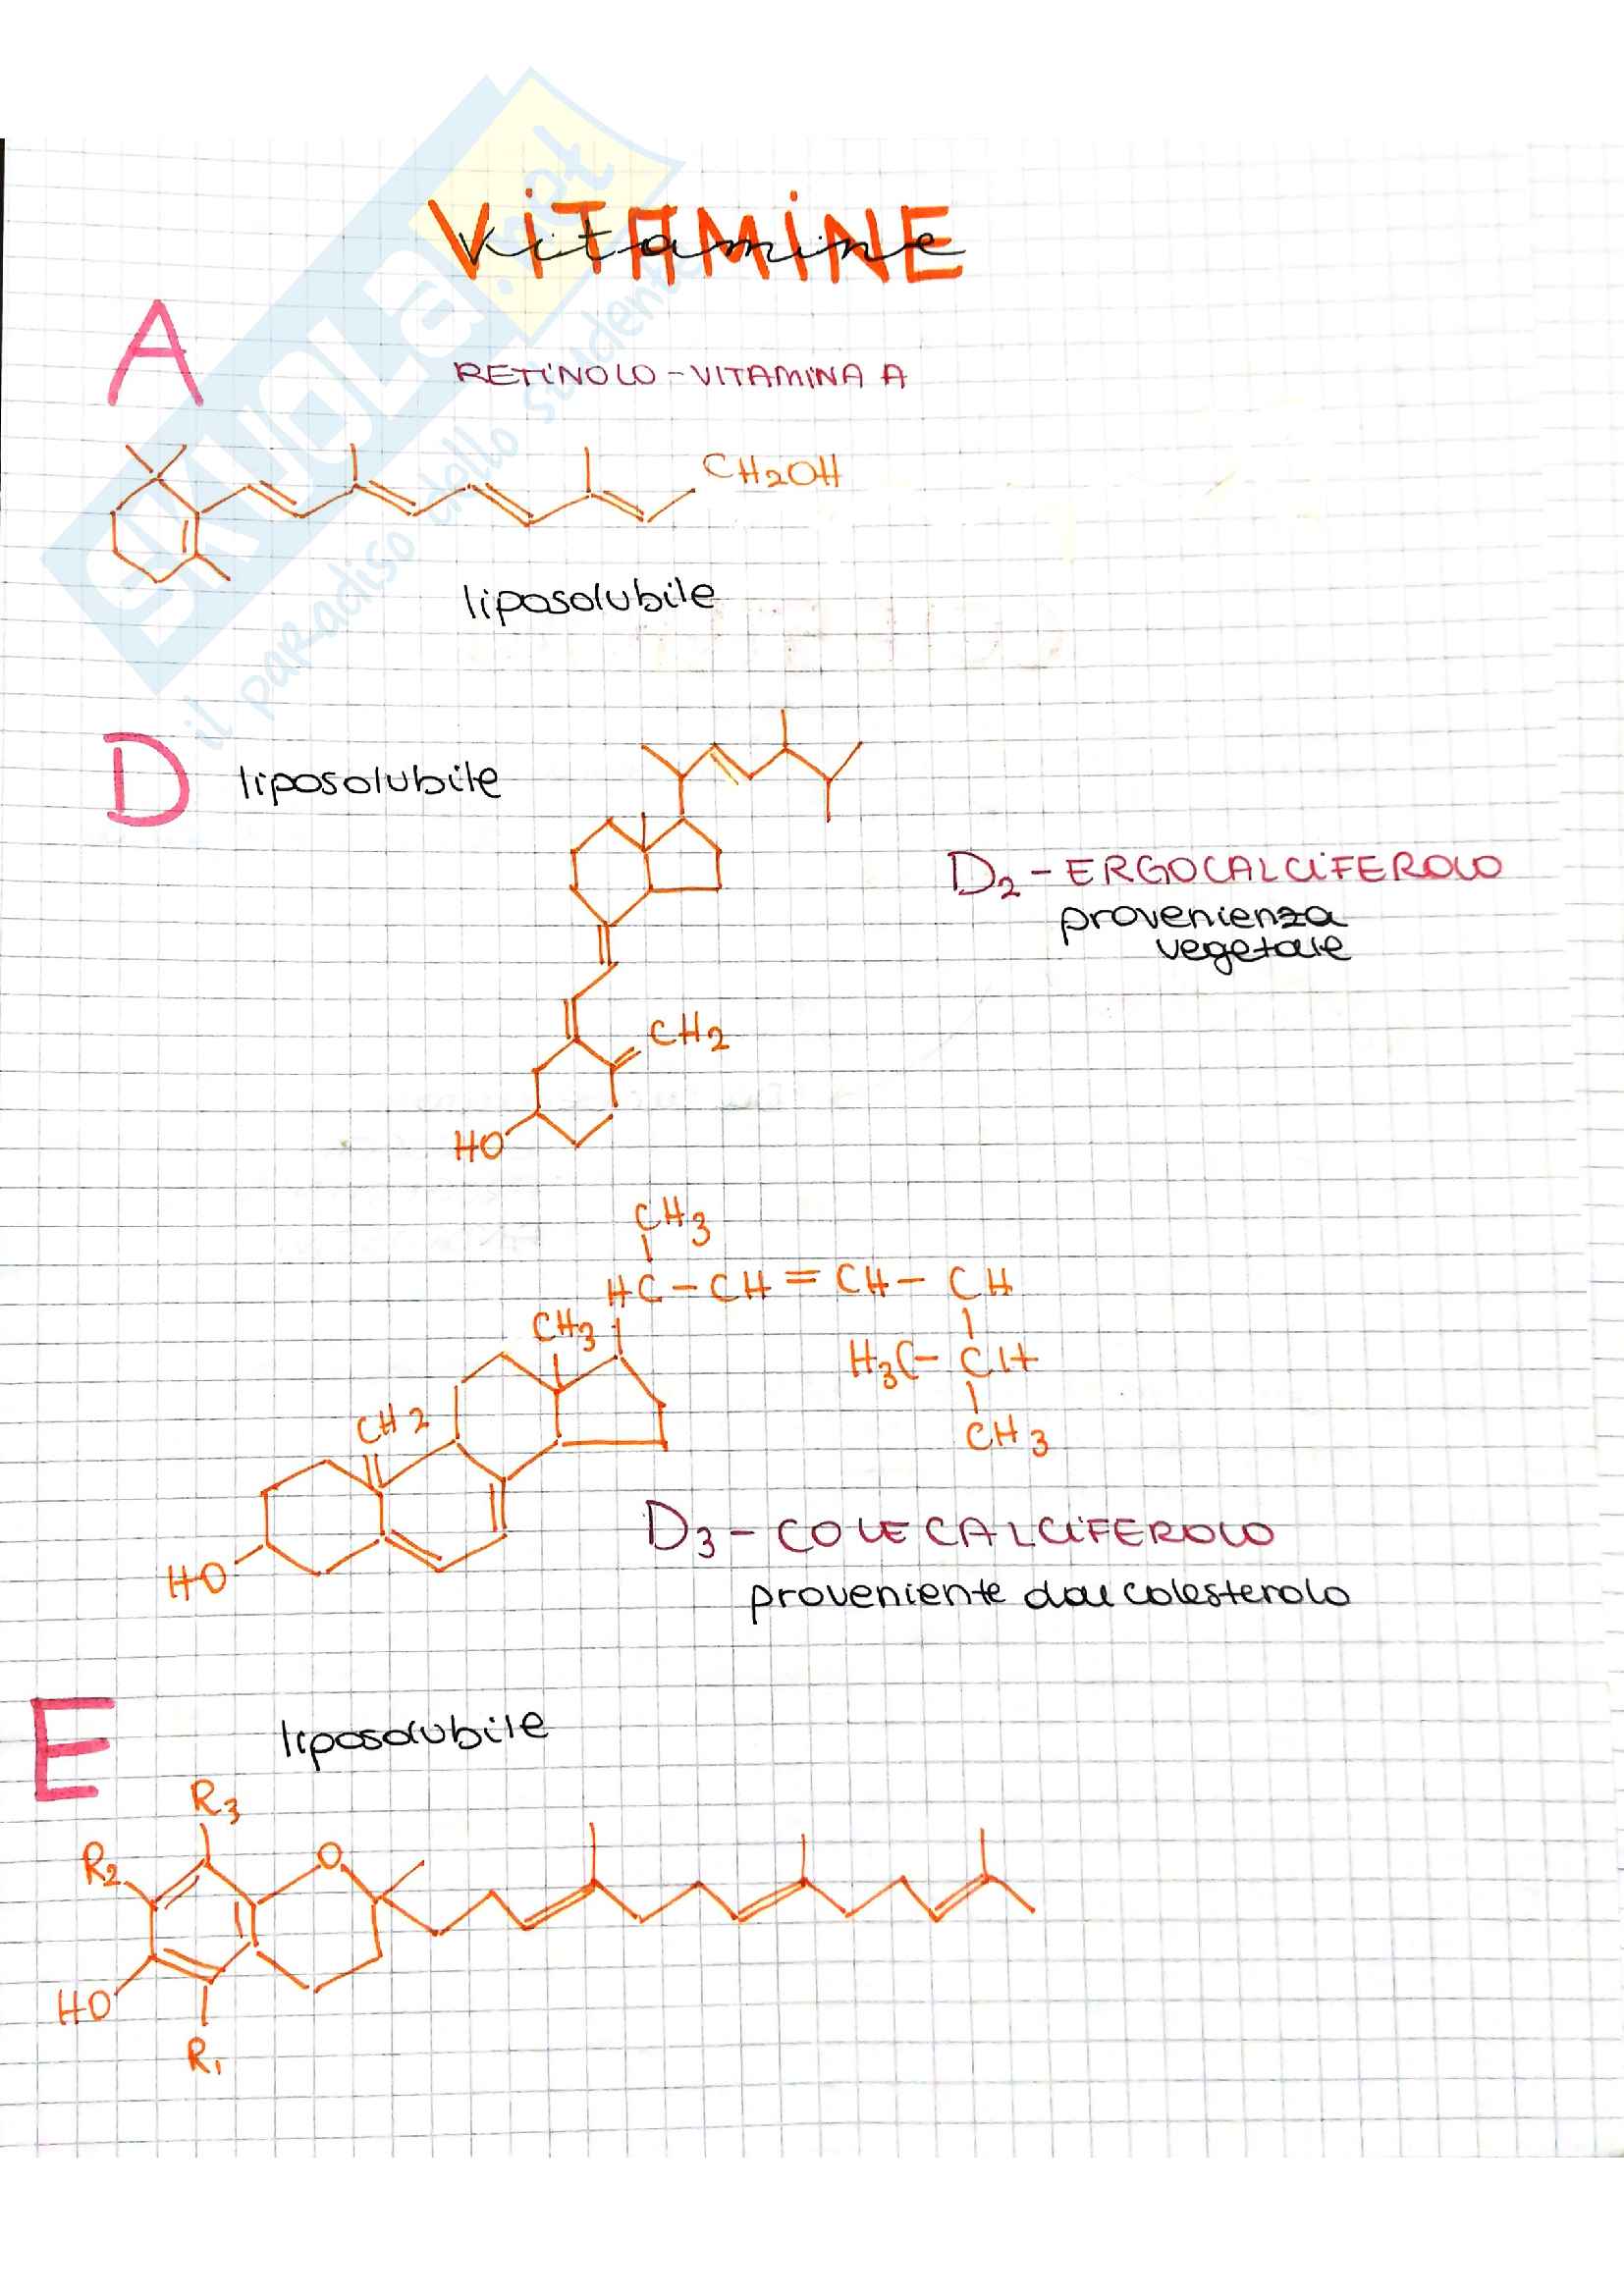 ViTAMiNE
Vitamine
SKUOLA.net
il paradiso dello studente
A
RETiNOLO - VITAMINA A
CH2OH
liposolubile
D
liposolubile
D2 - ERGOCALCiFEROLO
provenienza
vegetale
CH2
HO
CH3
HC - CH = CH - CH
CH3
H3C - CH
CH2
CH3
D3 - COLECALCiFEROLO
HO
proveniente dal colesterolo
E
liposolubile
R3
R2
O
HO
R1